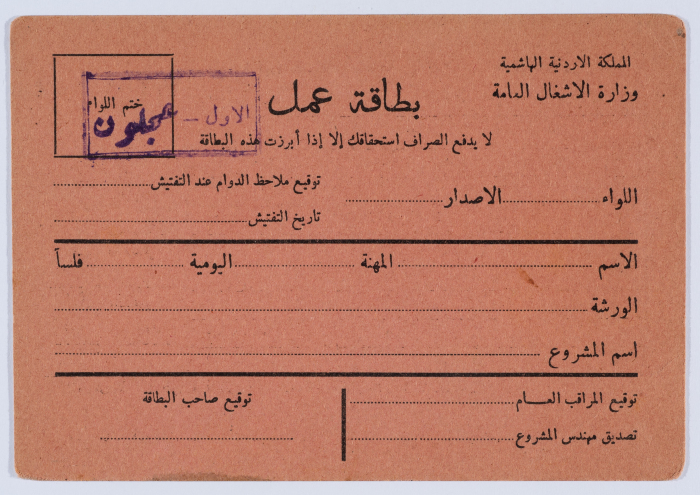 المملكة الاردنية الهاشمية
وزارة الاشغال العامة
بطاقة عمل
ختم اللواء
الاول - عجلون
لا يدفع الصراف استحقاقك إلا إذا أبرزت هذه البطاقة
اللواء..........الاصدار..........
توقيع ملاحظ الدوام عند التفتيش..........
تاريخ التفتيش..........
الاسم..........المهنة..........اليومية..........فلساً
الورشة..........
اسم المشروع..........
توقيع المراقب العـــام..........
تصديق مهندس المشروع..........
توقيع صاحب البطاقة
..........